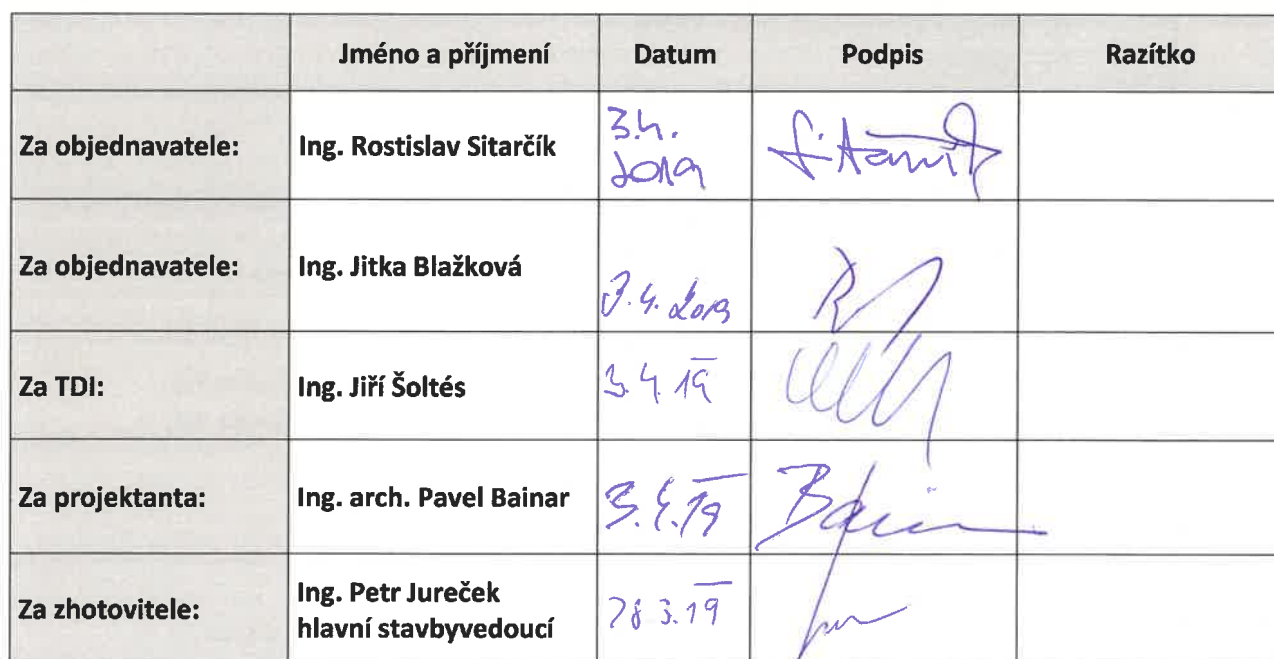 Jméno a příjmení Datum Podpis Razítko
Za objednavatele: Ing. Rostislav Sitarčík 3.4.
2019
Za objednavatele: Ing. Jitka Blažková 3.4. 2019
Za TDI: Ing. Jiří Šoltés 3.4.19
Za projektanta: Ing. arch. Pavel Bainar 3.4.19
Za zhotovitele: Ing. Petr Jureček
hlavní stavbyvedoucí 28.3.19